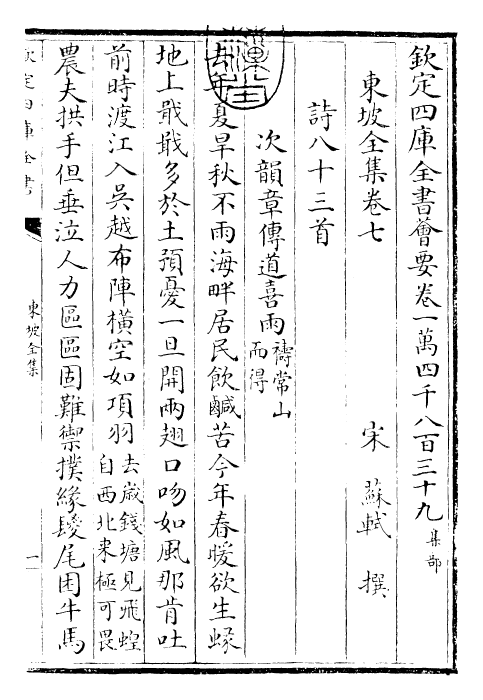 欽定四庫全書薈要卷一萬四千八百三十九集部
東坡全集卷七
宋 蘇軾 撰
詩八十三首
次韻章傳道喜雨禱常山而得
去年夏旱秋不雨海畔居民飲鹹苦今年春暖欲生蝝
地上戢戢多於土預憂一旦開兩翅口吻如風那肯吐
前時渡江入吳越布陣橫空如項羽去歲錢塘見飛蝗自西北來極可畏
農夫拱手但垂泣人力區區固難禦撲緣鬉尾困牛馬
欽定四庫全書
東坡全集
一